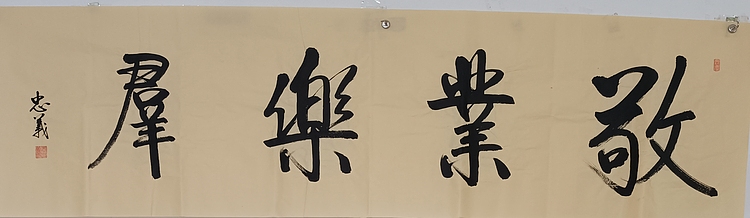 敬業樂羣
忠義